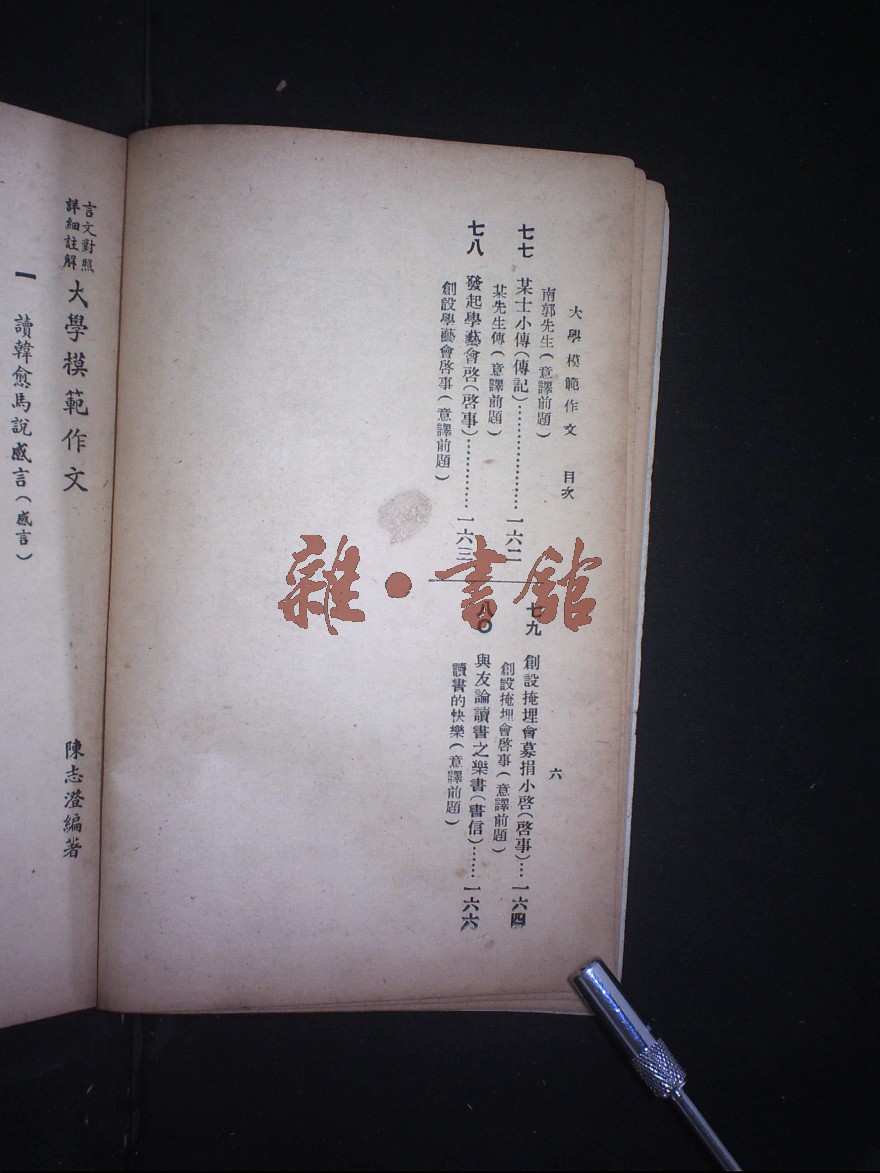 大學模範作文 目次
六
南郭先生(意譯前題)
七七 某士小傳(傳記)…………………一六二
某先生傳(意譯前題)
七八 發起學藝會啓(啓事)…………一六三
創設學藝會啓事(意譯前題)
七九 創設掩埋會募捐小啓(啓事)…一六四
創設掩埋會啓事(意譯前題)
八〇 與友論讀書之樂書(書信)……一六六
讀書的快樂(意譯前題)
雜·書館
言文對照
詳細註解
大學模範作文
陳志澄編著
一 讀韓愈馬說感言(感言)